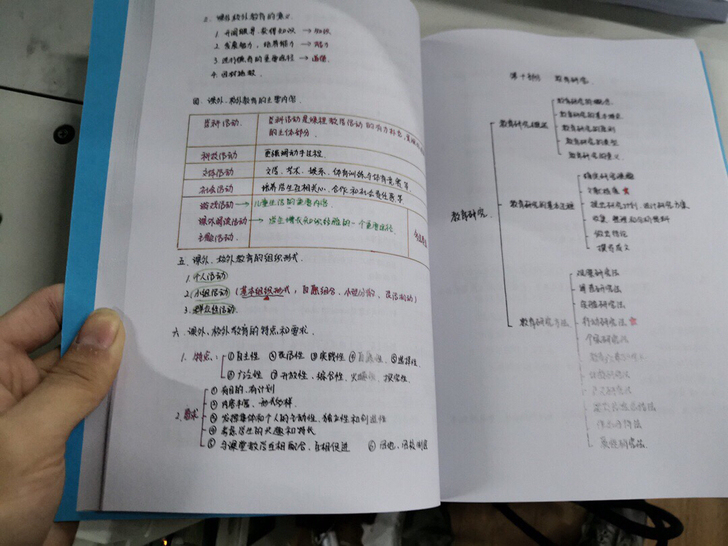 三、课外校外教育的意义
1. 开阔眼界、获得知识 → 知识
2. 发展智力、培养能力 → 能力
3. 进行德育的重要途径 → 道德
4. 因材施教
四、课外、校外教育的主要内容
学科活动
学科活动是课堂教学活动的有力补充,
的主体部分
科技活动 更强调动手过程
文体活动 文学、艺术、娱乐、体育训练与体育竞赛等
社会活动 培养学生互相关心、合作和社会责任等
游戏活动 → 儿童生活的重要内容
课外阅读活动 → 学生增长知识经验的一个重要途径
主题活动
五、课外、校外教育的组织形式
1. 个人活动
2. 小组活动 (基本组织形式,自愿组合、小型分散、灵活机动)
3. 群众性活动
六、课外、校外教育的特点和要求
1. 特点: ①自主性 ②灵活性 ③实践性
⑥广泛性 ⑦开放性、综合性、
2. 要求 ①有目的、有计划
②内容丰富、形式多样
③发挥集体和个人的主动性、独立性和创造性
④考虑学生的兴趣和特长
⑤与课堂教学互相配合、互相促进 ⑥因地、因校制宜
第十部分 教育研究
教育研究
教育研究概述
教育研究的概念
教育研究的基本要素
教育研究的原则
教育研究的类型
教育研究的意义
教育研究的基本过程
确定研究课题
文献检索
提出研究计划、设计研究方案
收集、整理和分析资料
做出结论
撰写报告
教育研究方法
观察研究法
调查研究法
实验研究法
行动研究法
个案研究法